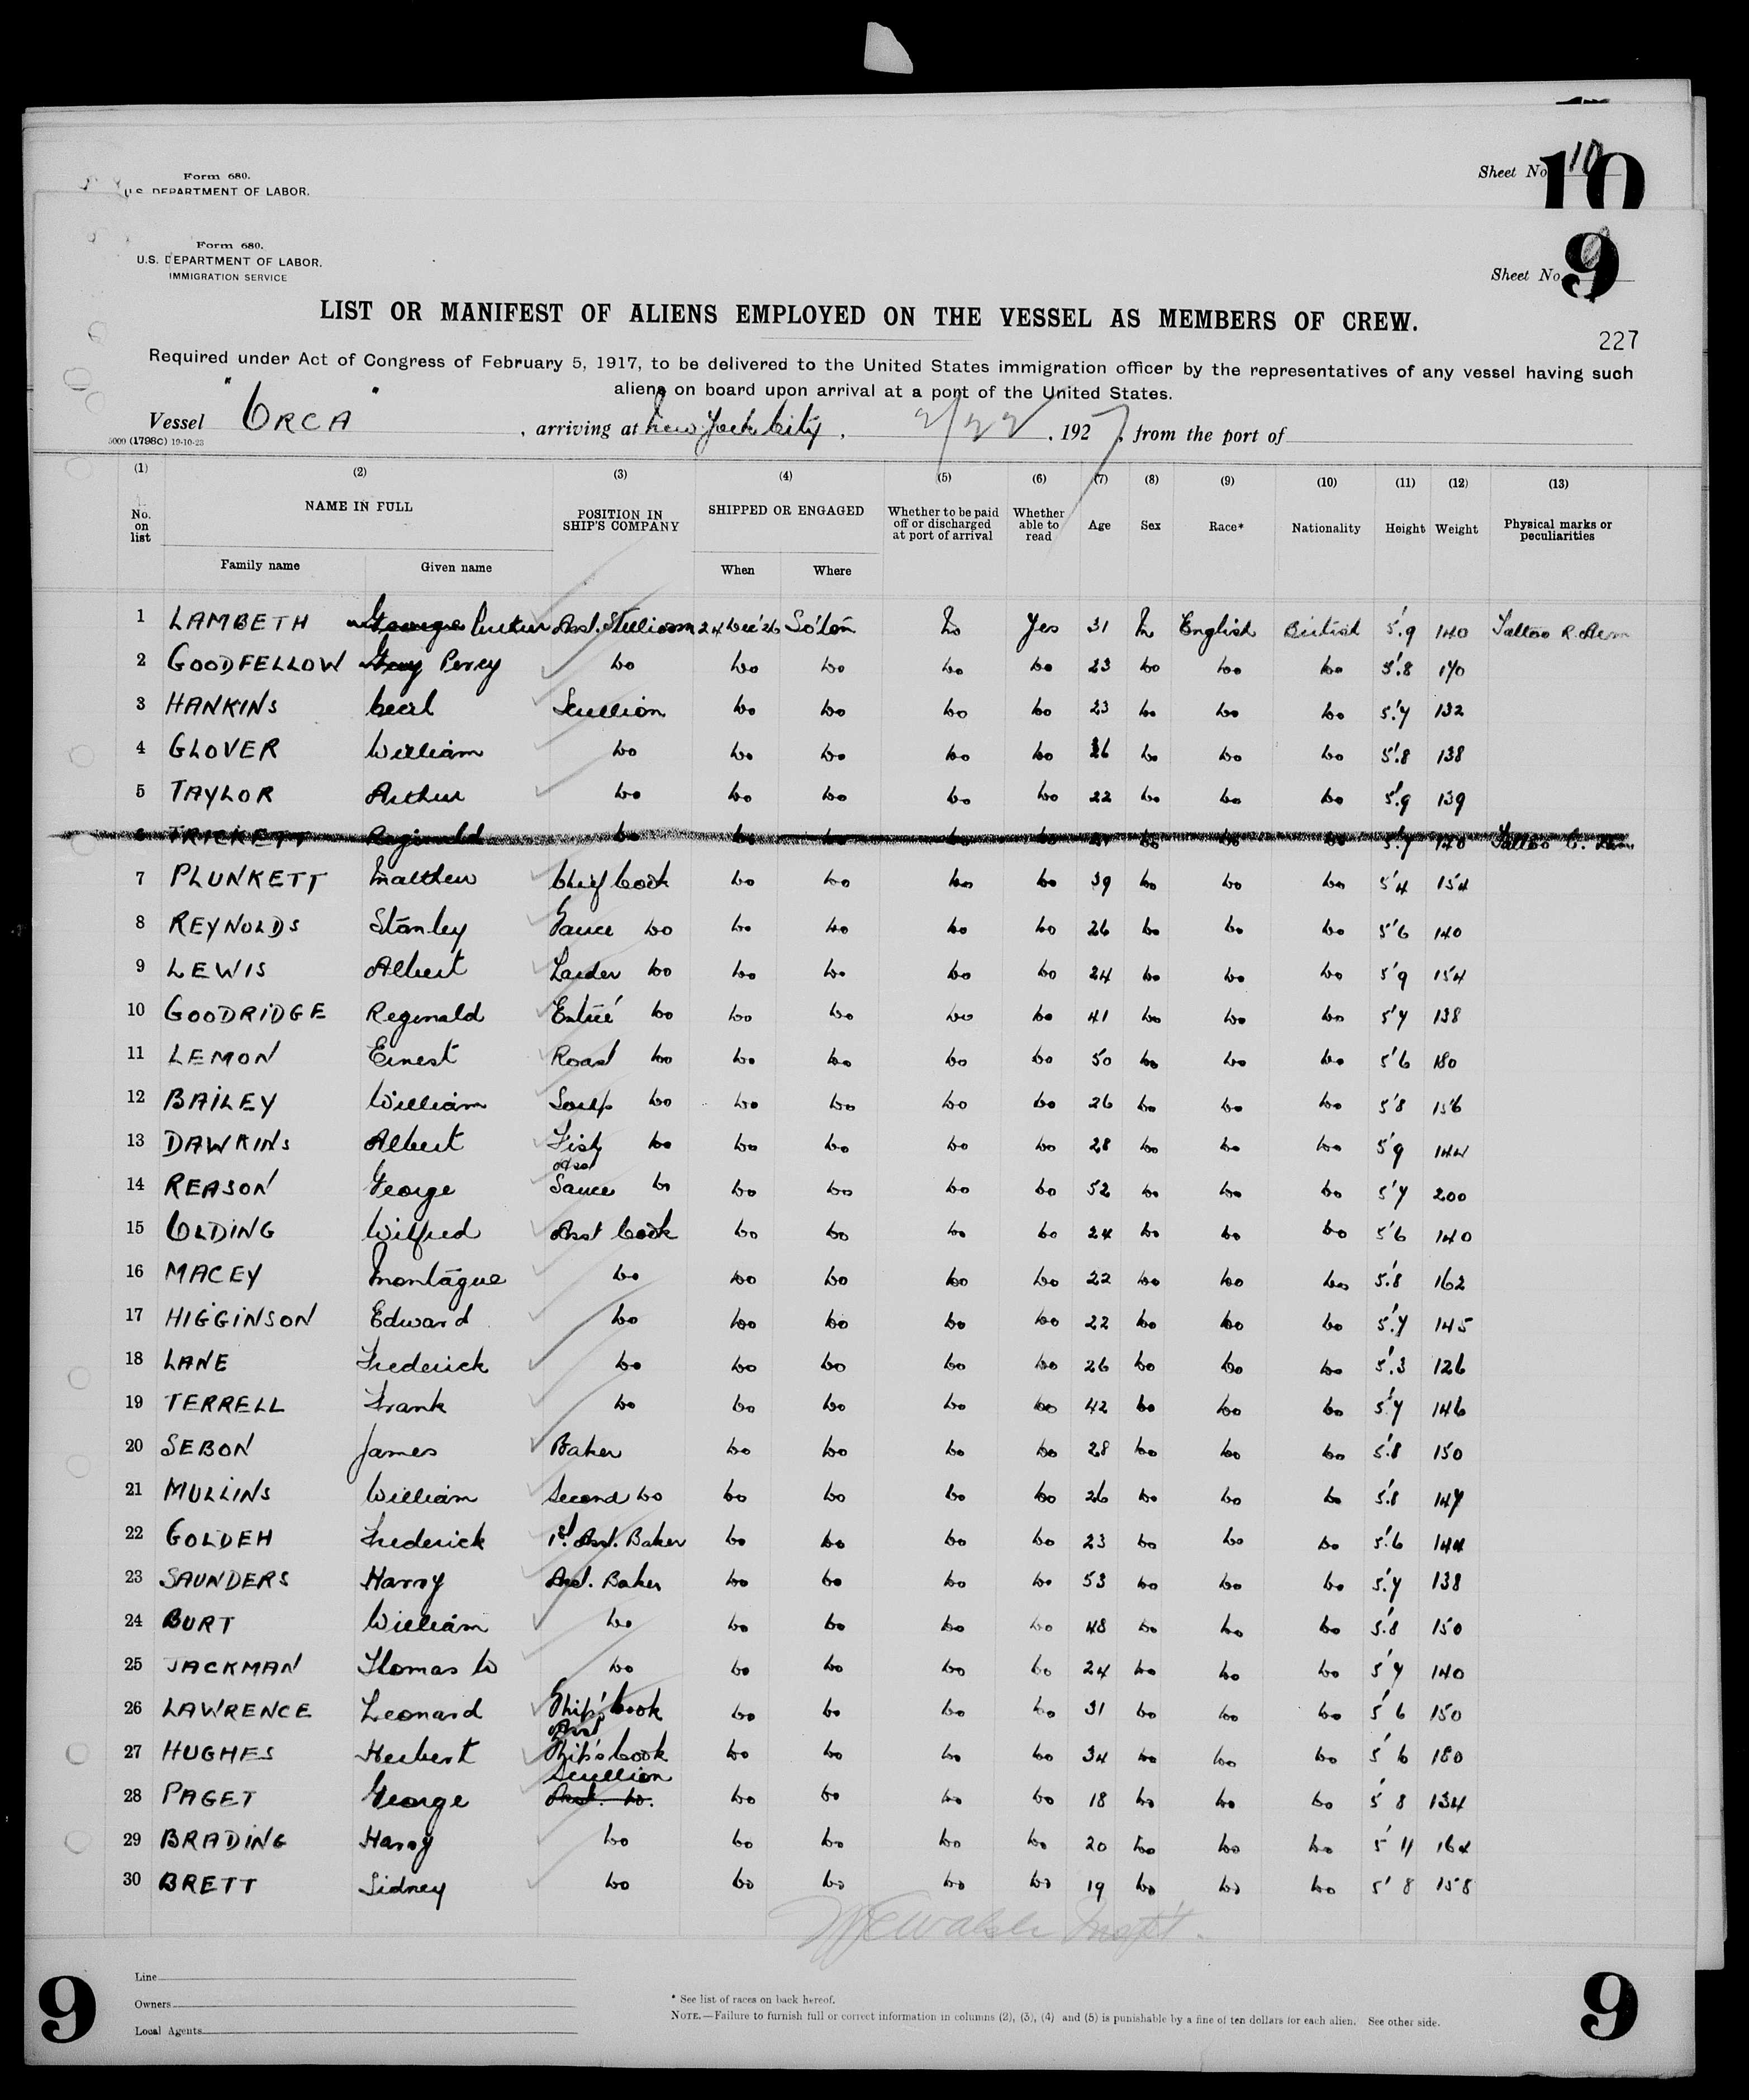 Form 680.
U.S. DEPARTMENT OF LABOR.
Sheet No. 10
10
Form 680.
U.S. DEPARTMENT OF LABOR.
IMMIGRATION SERVICE
Sheet No. 9
LIST OR MANIFEST OF ALIENS EMPLOYED ON THE VESSEL AS MEMBERS OF CREW.
227
Required under Act of Congress of February 5, 1917, to be delivered to the United States immigration officer by the representatives of any vessel having such
aliens on board upon arrival at a port of the United States.
Vessel "ORCA", arriving at New York City, 2/22, 1927, from the port of
5000 (1798C) 19-10-23
(1) (2) (3) (4) (5) (6) (7) (8) (9) (10) (11) (12) (13)
No. on list NAME IN FULL POSITION IN SHIP'S COMPANY SHIPPED OR ENGAGED Whether to be paid off or discharged at port of arrival Whether able to read Age Sex Race* Nationality Height Weight Physical marks or peculiarities
Family name Given name When Where
1 LAMBETH George Asst. 24 Dec '26 So'ton No Yes 31 M English British 5'.9 140 Tattoo R. Arm
2 GOODFELLOW Percy Do Do Do Do Do 23 Do Do Do 5'.8 170
3 HANKINS Cecil Scullion Do Do Do Do 23 Do Do Do 5'.7 132
4 GLOVER William Do Do Do Do Do 26 Do Do Do 5'.8 138
5 TAYLOR Arthur Do Do Do Do Do 22 Do Do Do 5'.9 139
6 TRICKETT Reginald Do Do Do Do Do Do Do Do 5'.7 140 Tattoo
7 PLUNKETT Matthew Chief Cook Do Do Do Do 39 Do Do Do 5'4 154
8 REYNOLDS Stanley Sauce Do Do Do Do Do 26 Do Do Do 5'6 140
9 LEWIS Albert Larder Do Do Do Do Do 24 Do Do Do 5'9 154
10 GOODRIDGE Reginald Entrée Do Do Do Do Do 41 Do Do Do 5'7 138
11 LEMON Ernest Roast Do Do Do Do Do 50 Do Do Do 5'6 180
12 BAILEY William Soup Do Do Do Do Do 26 Do Do Do 5'8 156
13 DAWKINS Albert Fish Do Do Do Do Do 28 Do Do Do 5'9 144
14 REASON George Asst Sauce Do Do Do Do Do 52 Do Do Do 5'7 200
15 OLDING Wilfred Asst Cook Do Do Do Do 24 Do Do Do 5'6 140
16 MACEY Montague Do Do Do Do Do 22 Do Do Do 5'.8 162
17 HIGGINSON Edward Do Do Do Do Do 22 Do Do Do 5'.7 145
18 LANE Frederick Do Do Do Do Do 26 Do Do Do 5'.3 126
19 TERRELL Frank Do Do Do Do Do 42 Do Do Do 5'.7 146
20 SEBON James Baker Do Do Do Do 28 Do Do Do 5'.8 150
21 MULLINS William Second Do Do Do Do Do 26 Do Do Do 5'.8 147
22 GOLDEH Frederick 1st. Asst. Baker Do Do Do Do 23 Do Do Do 5'.6 144
23 SAUNDERS Harry Asst. Baker Do Do Do Do 53 Do Do Do 5'.7 138
24 BURT William Do Do Do Do Do 48 Do Do Do 5'.8 150
25 JACKMAN Thomas W Do Do Do Do Do 24 Do Do Do 5'7 140
26 LAWRENCE Leonard Ship's Cook Do Do Do Do 31 Do Do Do 5'6 150
27 HUGHES Herbert Asst Ship's Cook Do Do Do Do 34 Do Do Do 5'6 180
28 PAGET George Scullion Asst. Do. Do Do Do Do 18 Do Do Do 5'8 134
29 BRADING Harry Do Do Do Do Do 20 Do Do Do 5'11 164
30 BRETT Sidney Do Do Do Do Do 19 Do Do Do 5'8 158
Walsh Inspt.
Line
Owners
Local Agents
* See list of races on back hereof.
NOTE.—Failure to furnish full or correct information in columns (2), (3), (4) and (5) is punishable by a fine of ten dollars for each alien. See other side.
9
9